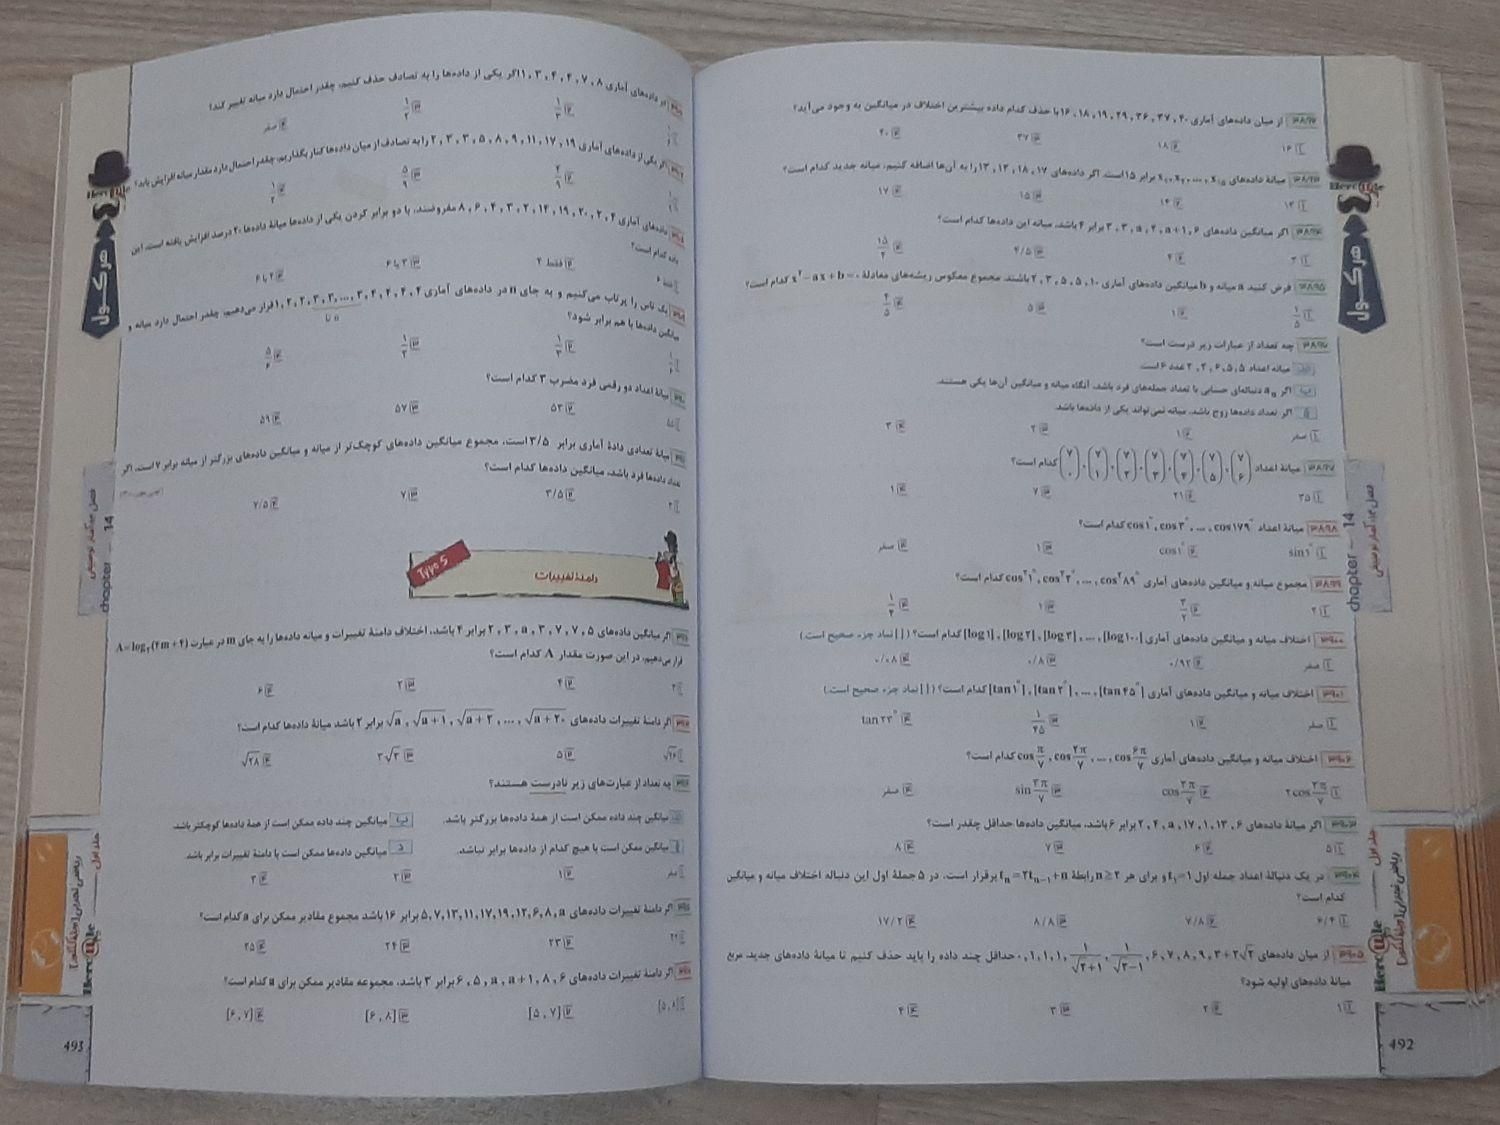 ۳۸۹۲ از میان داده‌های آماری ۴۰ , ۳۷ , ۳۶ , ۲۹ , ۱۹ , ۱۸ , ۱۶ با حذف کدام داده بیشترین اختلاف در میانگین به وجود می‌آید؟
۱) ۱۶ ۲) ۱۸ ۳) ۳۷ ۴) ۴۰
میانهٔ داده‌های x۱, x۲, ..., x۱۵ برابر ۱۵ است. اگر داده‌های ۱۷ , ۱۸ , ۱۳ , ۱۳ را به آن‌ها اضافه کنیم، میانه جدید کدام است؟
۱) ۱۳ ۲) ۱۴ ۳) ۱۵ ۴) ۱۷
۳۸۹۴ اگر میانگین داده‌های ۶ , a+۱ , ۴ , a , ۳ , ۳ برابر ۴ باشد، میانه این داده‌ها کدام است؟
۱) ۳ ۲) ۴ ۳) ۴/۵ ۴) ۱۵/۲
۳۸۹۵ فرض کنید a میانه و b میانگین داده‌های آماری ۱۰ , ۵ , ۵ , ۳ , ۲ باشند. مجموع معکوس ریشه‌های معادلهٔ x²−ax+b=۰ کدام است؟
۱) ۱/۵ ۲) ۱ ۳) ۵ ۴) ۴/۵
چه تعداد از عبارات زیر درست است؟
میانه اعداد ۵ , ۵ , ۶ , ۴ , ۲ عدد ۶ است.
ب اگر aₙ دنباله‌ای حسابی با تعداد جمله‌های فرد باشد، آنگاه میانه و میانگین آن‌ها یکی هستند.
ج اگر تعداد داده‌ها زوج باشد، میانه نمی‌تواند یکی از داده‌ها باشد.
۱) صفر ۲) ۱ ۳) ۲ ۴) ۳
۳۸۹۷ میانهٔ اعداد (۷ ۶) , (۷ ۵) , (۷ ۴) , (۷ ۳) , (۷ ۲) , (۷ ۱) , (۷ ۰) کدام است؟
۱) ۳۵ ۲) ۲۱ ۳) ۷ ۴) ۱
۳۸۹۸ میانهٔ اعداد cos۱°, cos۳°, ..., cos۱۷۹° کدام است؟
۱) sin۱° ۲) cos۱° ۳) ۱ ۴) صفر
۳۸۹۹ مجموع میانه و میانگین داده‌های آماری cos²۱°, cos²۲°, ..., cos²۸۹° کدام است؟
۱) ۲ ۲) ۳/۲ ۳) ۱ ۴) ۱/۲
۳۹۰۰ اختلاف میانه و میانگین داده‌های آماری [log۱], [log۲], [log۳], ..., [log۱۰۰] کدام است؟ ([ ] نماد جزء صحیح است.)
۱) صفر ۲) ۰/۹۲ ۳) ۰/۸ ۴) ۰/۰۸
۳۹۰۱ اختلاف میانه و میانگین داده‌های آماری [tan۱°], [tan۲°], ..., [tan۴۵°] کدام است؟ ([ ] نماد جزء صحیح است.)
۱) صفر ۲) ۱ ۳) ۱/۴۵ ۴) tan۲۳°
۳۹۰۲ اختلاف میانه و میانگین داده‌های آماری cos π/۷, cos ۲π/۷, ..., cos ۶π/۷ کدام است؟
۱) ۲cos ۳π/۷ ۲) cos ۳π/۷ ۳) sin ۳π/۷ ۴) صفر
۳۹۰۳ اگر میانهٔ داده‌های ۶ , ۱۳ , ۱ , ۱۷ , a , ۴ , ۲ برابر ۶ باشد، میانگین داده‌ها حداقل چقدر است؟
۱) ۵ ۲) ۶ ۳) ۷ ۴) ۸
۳۹۰۴ در یک دنبالهٔ اعداد جمله اول t₁=۱ و برای هر n≥۲ رابطهٔ tₙ=۲tₙ₋₁+n برقرار است. در ۵ جملهٔ اول این دنباله اختلاف میانه و میانگین
کدام است؟
۱) ۶/۴ ۲) ۷/۸ ۳) ۸/۸ ۴) ۱۷/۲
۳۹۰۵ از میان داده‌های ۰ , ۱ , ۱ , ۱ , ۱/(√۲+۱) , ۱/(√۲−۱) , ۶ , ۷ , ۸ , ۹ , ۳+۲√۲ حداقل چند داده را باید حذف کنیم تا میانهٔ داده‌های جدید، مربع
میانهٔ داده‌های اولیه شود؟
۱) ۱ ۲) ۲ ۳) ۳ ۴) ۴
492
در داده‌های آماری ۸ , ۷ , ۴ , ۴ , ۳ , ۱ اگر یکی از داده‌ها را به تصادف حذف کنیم، چقدر احتمال دارد میانه تغییر کند؟
۲) ۱/۳ ۳) ۱/۲ ۴) صفر
اگر یکی از داده‌های آماری ۱۹ , ۱۷ , ۱۱ , ۹ , ۸ , ۵ , ۳ , ۳ , ۲ را به تصادف از میان داده‌ها کنار بگذاریم، چقدر احتمال دارد مقدار میانه افزایش یابد؟
۲) ۴/۹ ۳) ۵/۹ ۴) ۱/۲
داده‌های آماری ۴ , ۲ , ۲۰ , ۱۹ , ۱۴ , ۲ , ۳ , ۴ , ۶ , ۸ مفروضند. با دو برابر کردن یکی از داده‌ها میانهٔ داده‌ها ۲۰ درصد افزایش یافته است. این
داده کدام است؟
فقط ۶ ۲) فقط ۴ ۳) ۴ یا ۶ ۴) ۲ یا ۶
یک تاس را پرتاب می‌کنیم و به جای n در داده‌های آماری ۱ , ۲ , ۲ , ۳ , ۳ , ... , ۳ , ۴ , ۴ , ۴ , ۴ قرار می‌دهیم. چقدر احتمال دارد میانه و
n تا
میانگین داده‌ها با هم برابر شود؟
۱/۶ ۲) ۱/۳ ۳) ۱/۲ ۴) ۵/۶
میانهٔ اعداد دو رقمی فرد مضرب ۳ کدام است؟
۲) ۵۳ ۳) ۵۷ ۴) ۵۹
میانهٔ تعدادی دادهٔ آماری برابر ۳/۵ است. مجموع میانگین داده‌های کوچک‌تر از میانه و میانگین داده‌های بزرگتر از میانه برابر ۷ است. اگر
تعداد داده‌ها فرد باشد، میانگین داده‌ها کدام است؟
۲) ۳/۵ ۳) ۷ ۴) ۷/۵
Type 5
دامنهٔ تغییرات
اگر میانگین داده‌های ۵ , ۷ , ۷ , ۳ , a , ۳ , ۲ برابر ۴ باشد، اختلاف دامنهٔ تغییرات و میانه داده‌ها را به جای m در عبارت A=log₂(۳m+۴)
قرار می‌دهیم، در این صورت مقدار A کدام است؟
۲) ۴ ۳) ۲ ۴) ۶
اگر دامنهٔ تغییرات داده‌های √a, √(a+۱), √(a+۲), ..., √(a+۲۰) برابر ۲ باشد میانهٔ داده‌ها کدام است؟
√۲۶ ۲) ۵ ۳) ۳√۳ ۴) √۲۸
چه تعداد از عبارت‌های زیر نادرست هستند؟
میانگین چند داده ممکن است از همهٔ داده‌ها بزرگتر باشد.
ب میانگین چند داده ممکن است از همهٔ داده‌ها کوچکتر باشد.
ج میانگین ممکن است با هیچ کدام از داده‌ها برابر نباشد.
د میانگین داده‌ها ممکن است با دامنهٔ تغییرات برابر باشد.
صفر ۲) ۱ ۳) ۲ ۴) ۳
اگر دامنهٔ تغییرات داده‌های ۵,۷,۱۳,۱۱,۱۷,۱۹,۱۲,۶,۸,a برابر ۱۶ باشد مجموع مقادیر ممکن برای a کدام است؟
۲) ۲۳ ۳) ۲۴ ۴) ۲۵
اگر دامنهٔ تغییرات داده‌های ۶ , ۸ , a+۱ , a , ۵ , ۶ برابر ۳ باشد، مجموعه مقادیر ممکن برای a کدام است؟
[۵,۸] ۲) [۵,۷] ۳) [۶,۸] ۴) [۶,۷]
493
هرکول
هرکول
chapter — 14
chapter — 14
فصل ۱۴: آمار توصیفی
جلد اول
Hercule